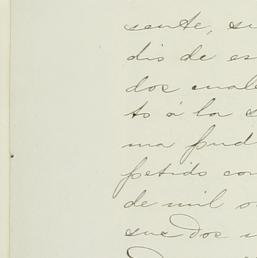 sente, su
dio de es
dos cuale
to á la s
ma pud
petido con
de mil o
sus dos